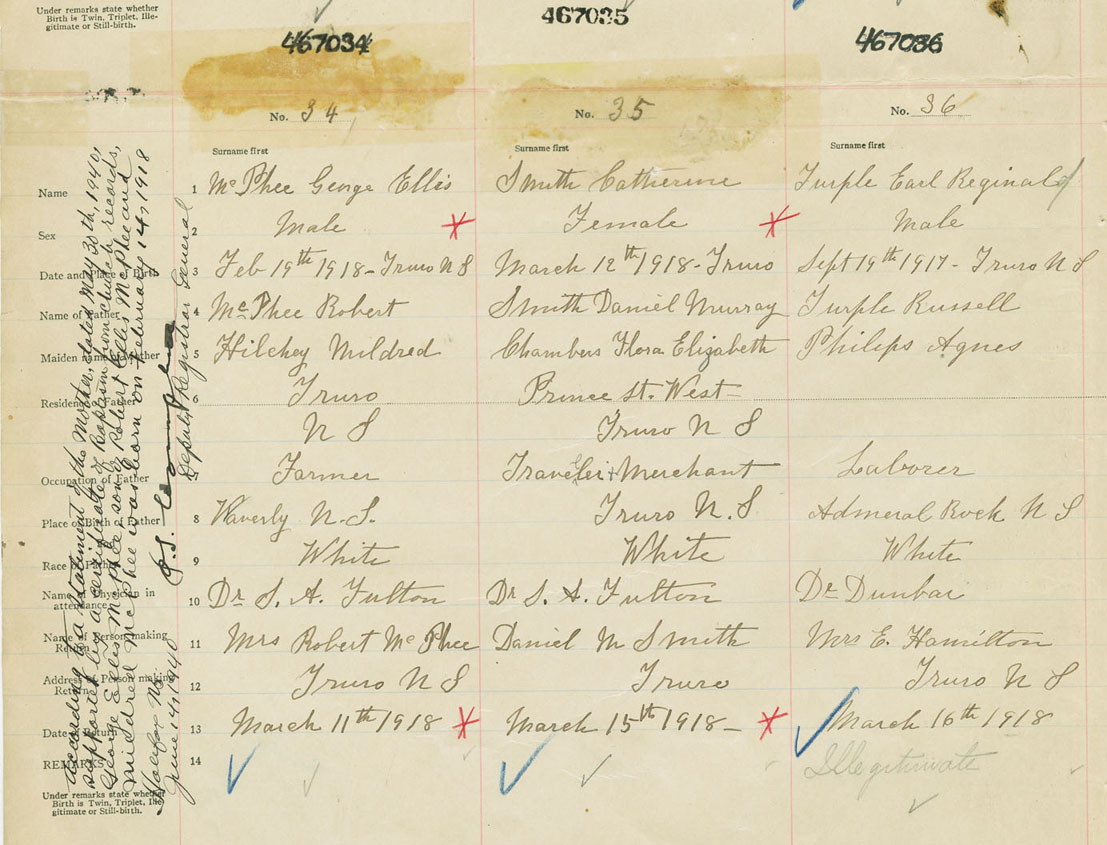 Under remarks state whether
Birth is Twin, Triplet, Ille-
gitimate or Still-birth.
467034
467035
467036
No. 34
No. 35
No. 36
Surname first
Surname first
Surname first
Name
1
Mc Phee George Ellis
Smith Catherine
Turple Earl Reginald
Sex
2
Male
Female
Male
Date and Place of Birth
3
Feb 19th 1918 - Truro N S
March 12th 1918 - Truro
Sept 19th 1917 - Truro N S
Name of Father
4
Mc Phee Robert
Smith Daniel Murray
Turple Russell
Maiden name of Mother
5
Hilchey Mildred
Chambers Flora Elizabeth
Philips Agnes
Residence of Father
6
Truro
Prince St. West
N S
Truro N S
Occupation of Father
Farmer
Merchant
Laborer
Place of Birth of Father
8
Waverly N.S.
Truro N.S
Admeral Rock N S
Race of Father
9
White
White
White
Name of Physician in
attendance
10
Dr S. A. Fulton
Dr S. A. Fulton
Dr Dunbar
Name of Person making
Return
11
Mrs Robert Mc Phee
Daniel M Smith
Mrs E. Hamilton
Address of Person making
Return
12
Truro N S
Truro
Truro N S
Date of Return
13
March 11th 1918
March 15th 1918 -
March 16th 1918
REMARKS
14
Illegitimate
Under remarks state whether
Birth is Twin, Triplet, Ille-
gitimate or Still-birth.
According to a statement of the Mother, dated May 30th, 1940,
supported by a certificate of Baptism from church records,
George Ellis McPhee, son of Robert Ellis McPhee and
Mildred McPhee was born on February 14, 1918
Halifax N.S.
June 14, 1940
Deputy Registrar General